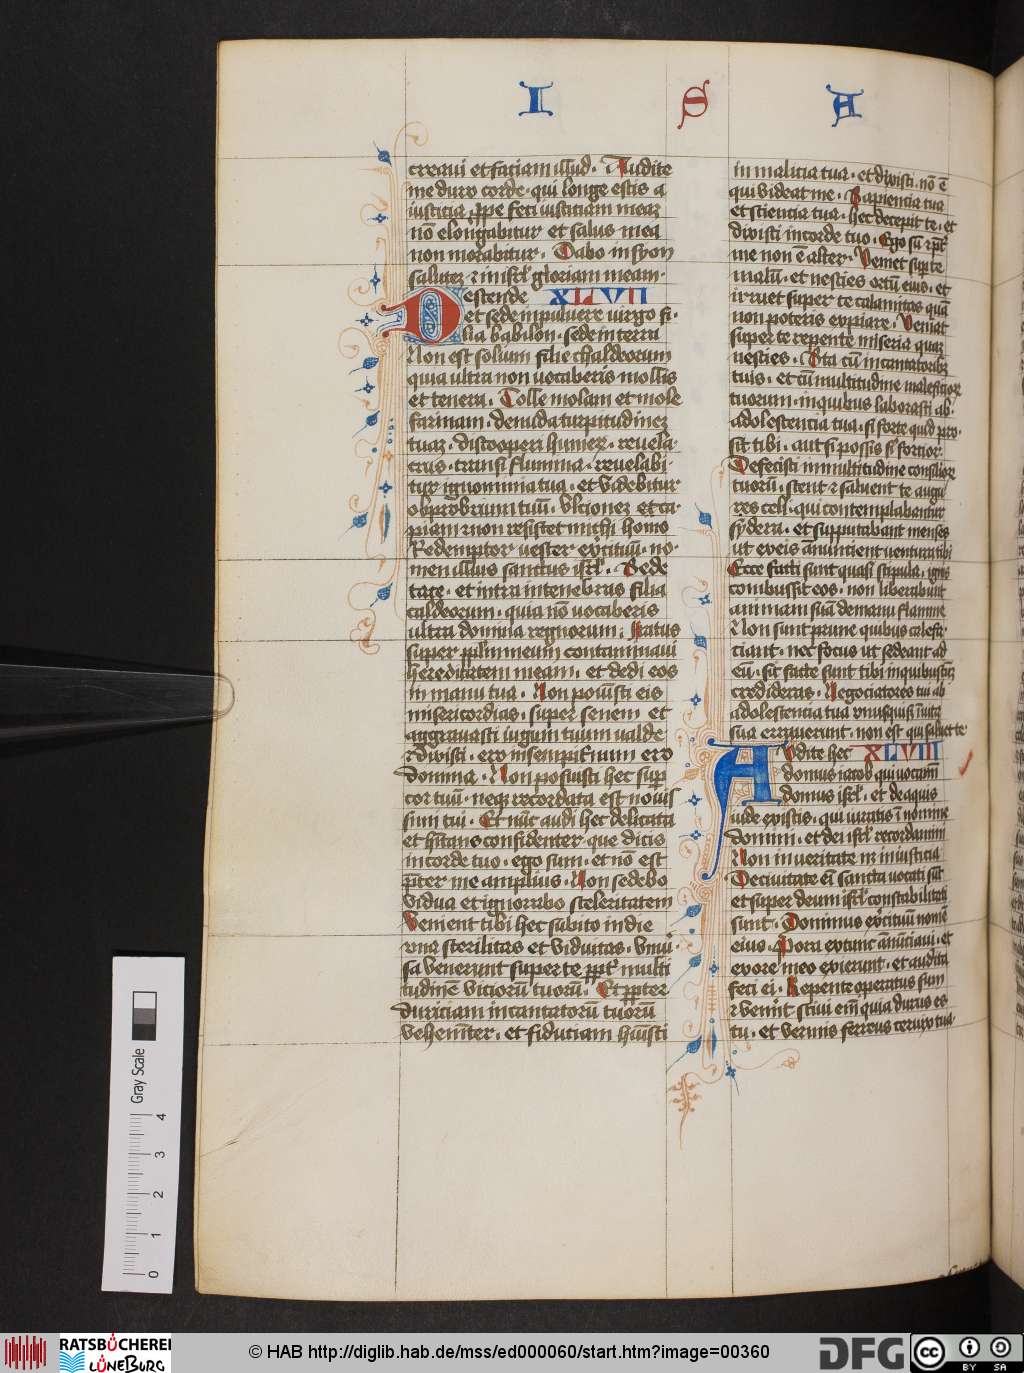 I S A
creavi et faciam illud. Audite
me duro corde. qui longe estis a
iusticia ꝓpe feci iusticiam meaꝫ
nō elongabitur et salus mea
non morabitur. Dabo in syon
salutēꝫ ⁊ in isrl̄ gloriam meam.
Descende XLVII
et sede in pulvere virgo fi-
lia babilon. sede in terra
Non est solium filie chaldeorum
quia ultra non vocaberis mollis
et tenera. Tolle molam et mole
farinam. denuda turpitudinēꝫ
tuaꝫ. discooperi humerꝫ. revela
crus. transi flumina. revelabi-
tur ignominia tua. et videbitur
obprobrium tuū. Ulcionēꝫ et ca-
piam ⁊ non resistet michi homo
Redemptor vester exʼcituū. no-
men illius sanctus isrl̄. Sede
tace. et intra in tenebras filia
caldeorum. quia nō vocaberis
ultra domina regnorum. Iratus
super ppl̄m meum contaminavi
hereditatem meam. et dedi eos
in manu tua. Non posuisti eis
misericordias. super senem et
aggravasti iugum tuum valde
⁊ dixisti. ero in sempiternum ero
domina. Non posuisti hec sup̄
cor tuū. neqꝫ recordata est novis-
simi tui. Et nūc audi hec delicata
et hītans confidenter. que dicis
in corde tuo. ego sum. et nō est
p̄ter me amplius. Non sedebo
vidua et ignorabo sterilitatem
Venient tibi hec subito in die
una sterilitas et viduitas. univ̄-
sa venerunt super te ꝓpt̄ multi
tudinē viciorū tuorū. Et ꝓpter
duriciam incantatorū tuorū
vehemēter. et fiduciam hūisti
in malicia tua. et dixisti. nō ē
qui videat me. Sapiencia tua
et sciencia tua. hec decepit te. et
dixisti in corde tuo. Ego sū ⁊ pt̄
me non ē alter. Veniet sup te
malū. et nescies ortū eius. et
irruet super te calamitas quā
non poteris expiare. Veniat
super te repente miseria quaꝫ
nescies. Sta cū incantatoribꝫ
tuis. et cū multitudine maleficioꝝ
tuorum. in quibus laborasti ab
adolescencia tua. si forte quid pro-
sit tibi. aut si possis fi fortior.
Defecisti in multitudine consilioꝝ
tuorū. stent ⁊ salvent te augu
res celi. qui contemplabantur
sydera. et supputabant menses
ut ex eis ānuncient ventura tibi
Ecce facti sunt quasi stipula. ignis
combussit eos. non liberabunt
animam suā de manu flamme
Non sunt prune quibus calefa-
ciant. nec focus ut sedeant ad
eū. sic facte sunt tibi in quibuscūqꝫ
credideras. Negociatores tui ab
adolescencia tua unusquisqꝫ ī vita
sua erraverunt. non est qui salvet te
Audite hec XLVIII
domus iacob qui vocamī
domus isrl̄. et de aquis
iude existis. qui iuratis ī nomine
domini. et dei isrl̄ recordamini
Non in veritate nec in iusticia
De civitate em̄ sancta vocati sūt
et super deum isrl̄ constabilitati
sunt. Dominus exʼcituū nomē
eius. Priora ex tunc ānunciavi. et
ex ore meo exierunt. et audita
feci ei. Repente operatus sum
⁊ venerūt scivi em̄ quia durus es
tu. et vervus ferreus cervix tua.
Gray Scale
4
3
2
1
0
RATSBÜCHEREI
LÜNEBURG
© HAB http://diglib.hab.de/mss/ed000060/start.htm?image=00360
DFG
cc BY SA